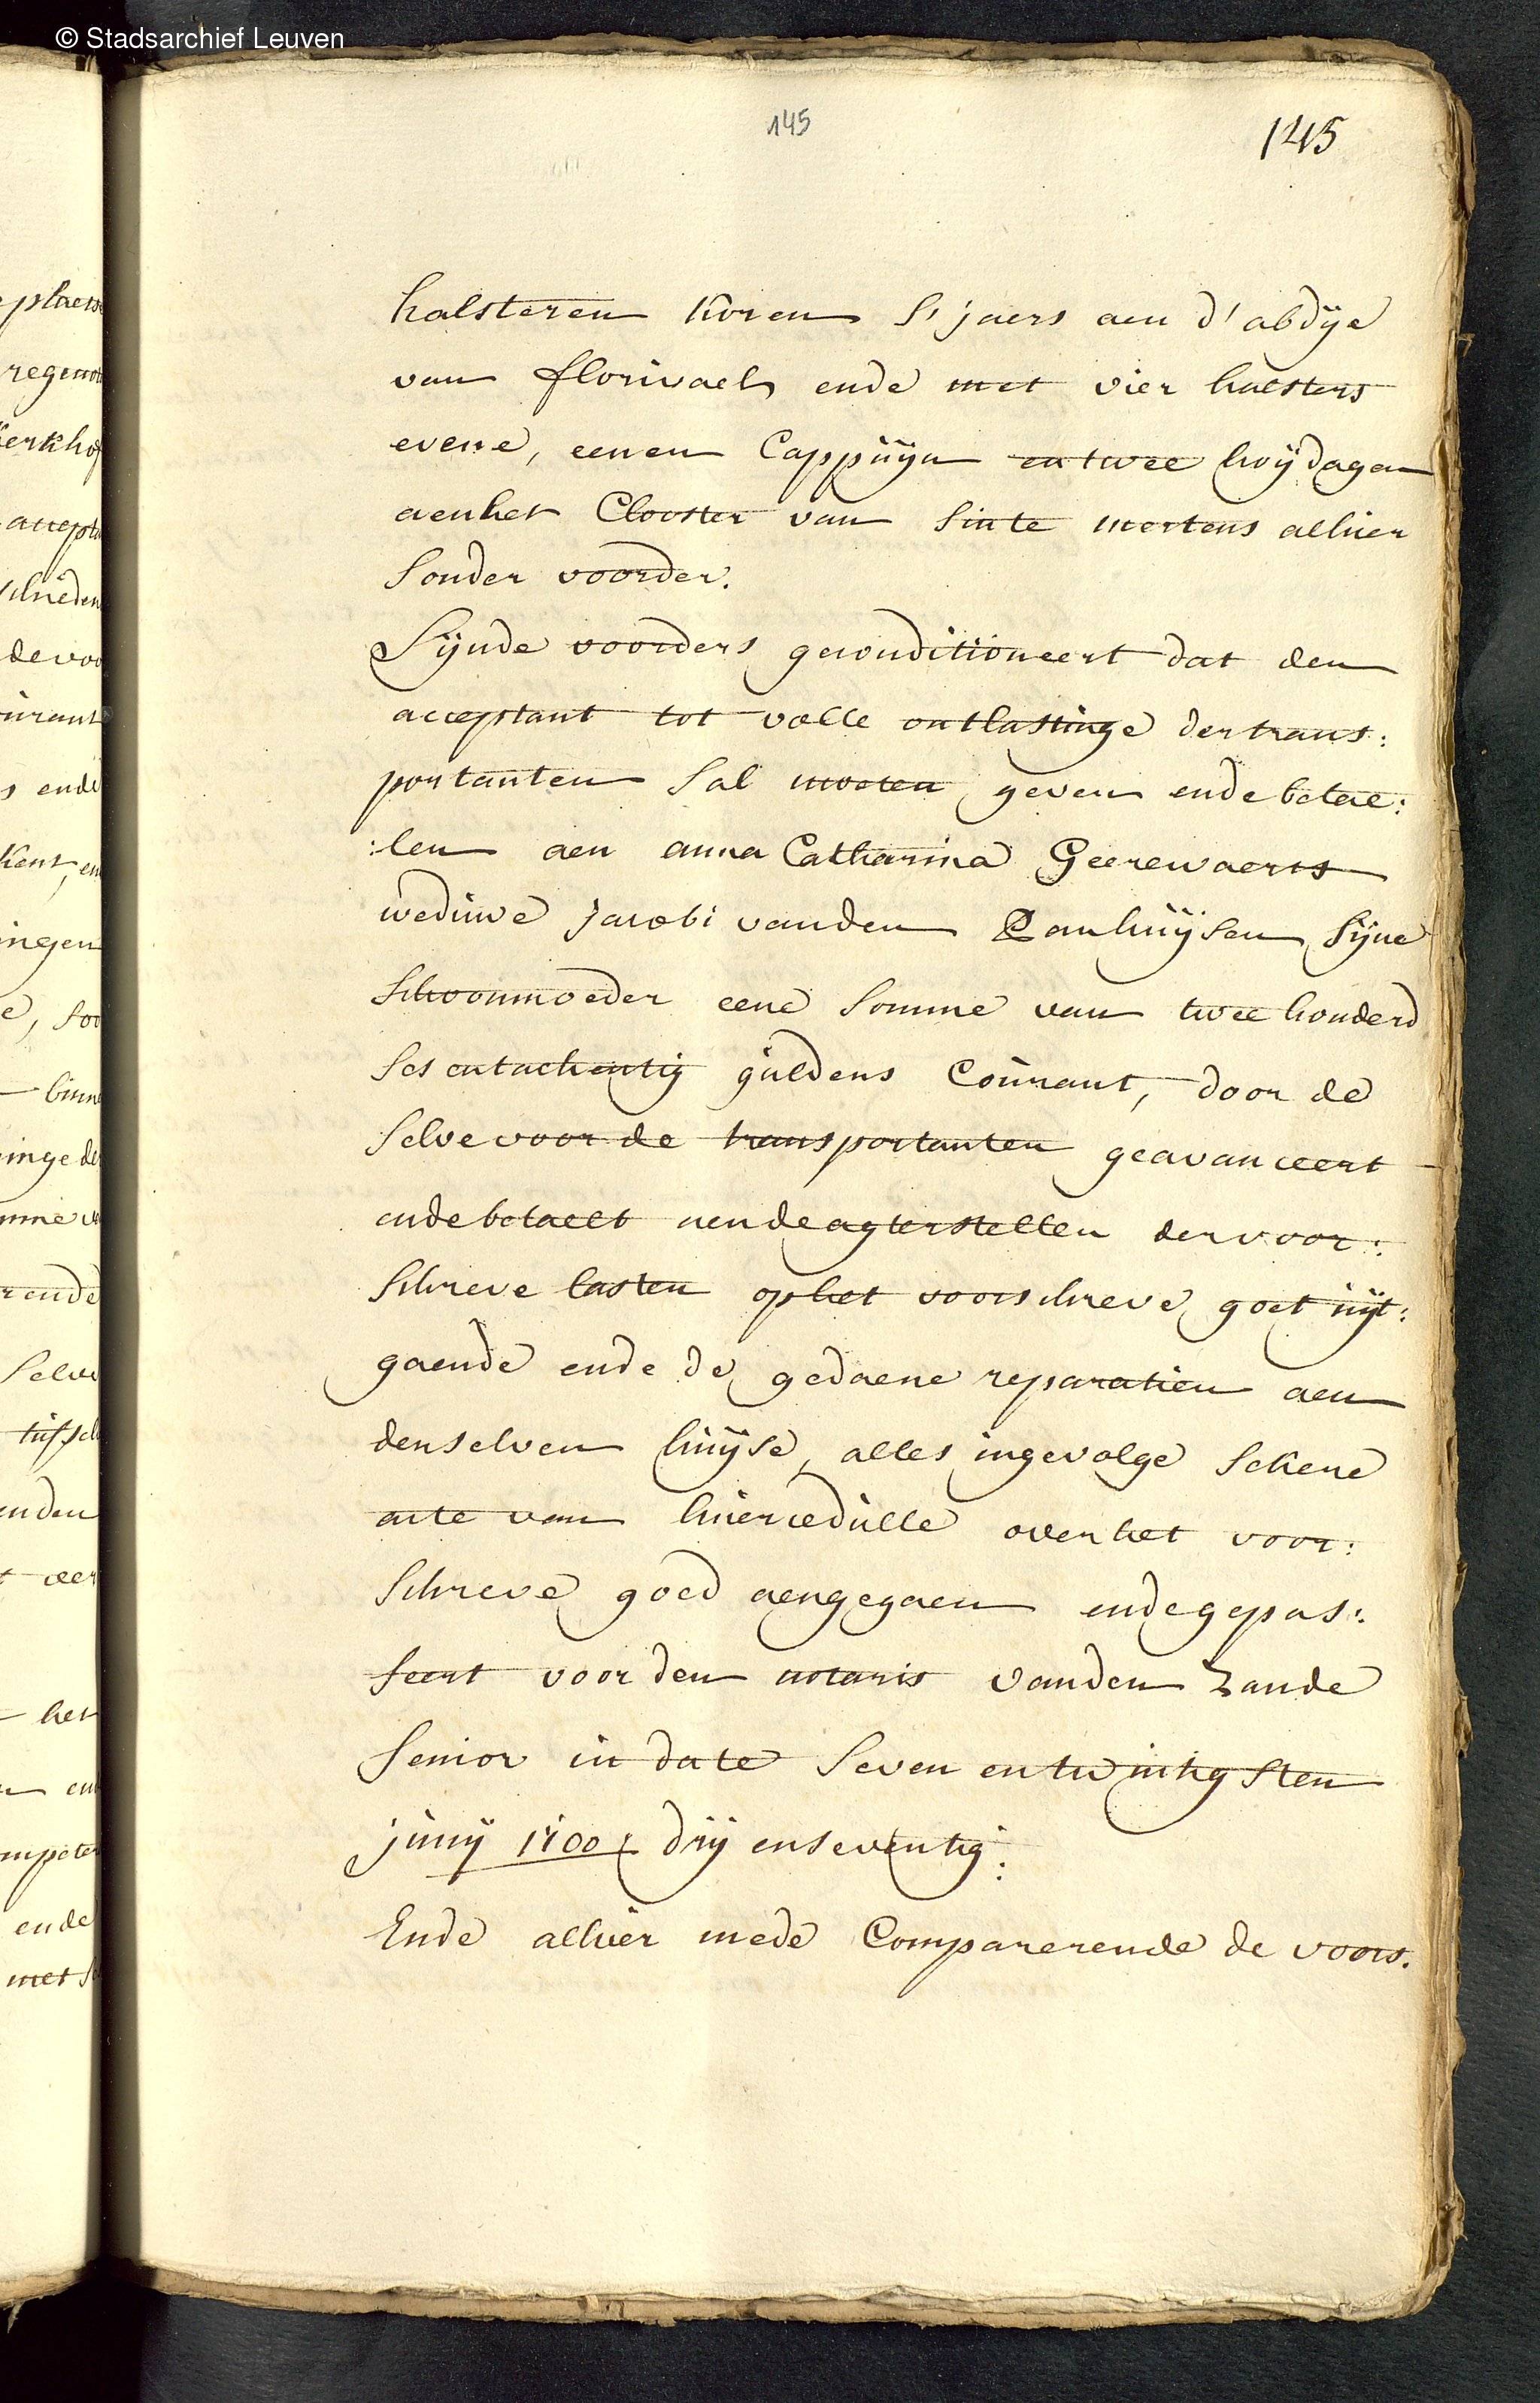 © Stadsarchief Leuven
145
145
halsteren koren s'jaers aen d'abdije
van florivael ende met vier halsters
evene, eenen Cappuijn en twee hoijdagen
aenhet Clooster van sinte mertens alhier
sonder voorder.
Sijnde voorders geconditioneert dat den
acceptant tot volle ontlastinge der trans:
portanten sal moeten geven ende betae:
:len aen anna Catharina Geerewaerts
weduwe jacobi vanden Panhuijsen sijne
schoonmoeder eene somme van twee honderd
ses entachentig guldens Courant, door de
selve voor de transportanten geavanceert
ende betaelt aen de agterstellen der voor:
schreve lasten op het voorschreve goet uijt:
gaende ende de gedaene reparatien aen
denselven huijse, alles ingevolge sekere
acte van huercedulle over het voor:
schreve goed aengegaen ende gepas:
seert voor den notaris vanden Zande
senior in date seven entwintigsten
junij 1700 drij enseventig:
Ende alhier mede Comparerende de voors.
plaets
regenoo
kerkhof
accepta
schieden
de voo
ourant
s ende
kent, en
ingen
e, soo
binne
inge de
rende
selve
tussch
enden
het
ende
met s